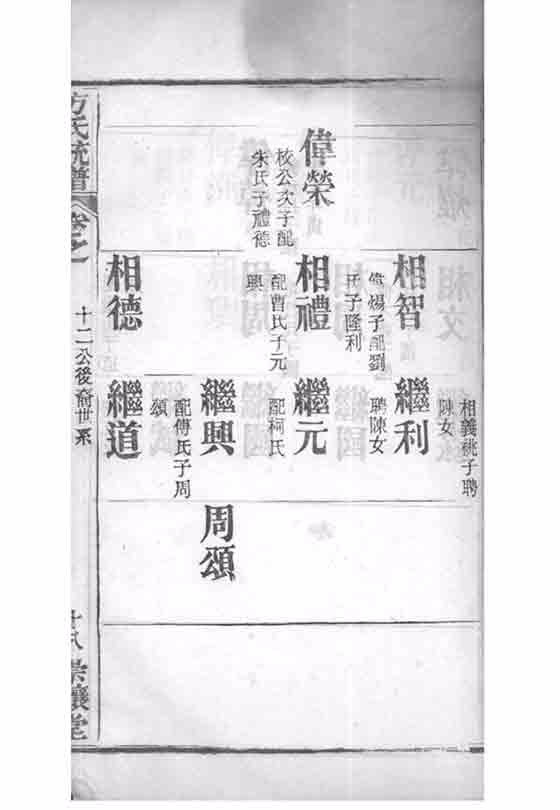 偉榮
校公次子配
朱氏子禮德
相智
偉煬子配劉
氏子隆利
相禮
配曹氏子元
興
相德
相義祧子聘
陳女
繼利
聘陳女
繼元
配柯氏
繼興
配傅氏子周
頌
繼道
周頌
方氏統譜
卷之
十二公後裔世系
十八